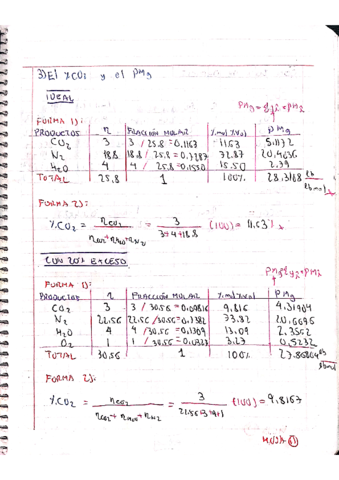 3) El %CO₂ y el PMg
IDEAL
PMg = Σyi * PMi
FORMA 1):
PRODUCTOS n FRACCIÓN MOLAR %mol %Vol PMg
CO₂ 3 3 / 25.8 = 0.1163 11.63 5.1172
N₂ 18.8 18.8 / 25.8 = 0.7287 72.87 20.4036
H₂O 4 4 / 25.8 = 0.1550 15.50 2.79
TOTAL 25.8 1 100% 28.3108 lb/lbmol
FORMA 2):
%CO₂ = nCO₂ / nCO₂ + nH₂O + nN₂ = 3 / 3+4+18.8 (100) = 11.63 %
CON 20% EXCESO
FORMA 1):
PRODUCTOS n FRACCIÓN MOLAR %mol %Vol PMg
CO₂ 3 3 / 30.56 = 0.09816 9.816
N₂ 22.56 22.56 / 30.56 = 0.7382 73.82 20.6696
H₂O 4 4 / 30.56 = 0.1309 13.09 2.3562
O₂ 1 1 / 30.56 =
TOTAL 30.56 1 100%
FORMA 2):
%CO₂ = nCO₂ / nCO₂ + nH₂O + nN₂ = 3 (100) = 9.8167